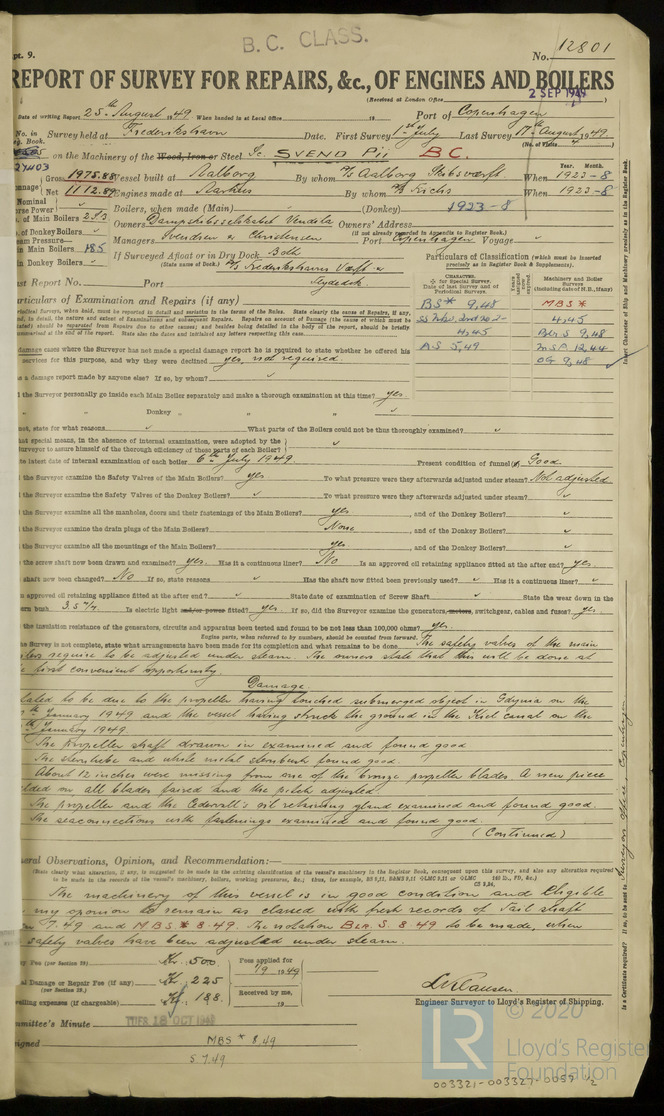 B. C. CLASS.
pt. 9.
No. 12801
REPORT OF SURVEY FOR REPAIRS, &c., OF ENGINES AND BOILERS
(Received at London Office 2 SEP 1949)
Date of writing Report 25th August 1949 When handed in at Local Office 19 Port of Copenhagen
No. in Survey held at Frederikshavn Date. First Survey 1st July Last Survey 17th August 1949
g. Book. (No. of Visits 4)
27403 on the Machinery of the Wood, Iron or Steel Sc. SVEND PII B.C.
Gross 1975.88 Vessel built at Aalborg By whom A/S Aalborg Skibsværft. When 1923-8
Year. Month.
Net 1112.89 Engines made at Aarhus By whom A/S Frichs When 1923-8
Nominal
rse Power Boilers, when made (Main) " (Donkey) 1923-8
of Main Boilers 2 Owners Dampskibsselskabet Vendila Owners' Address
of Donkey Boilers " (If not already recorded in Appendix to Register Book.)
team Pressure—
in Main Boilers 185 Managers Svendsen & Christensen Port Copenhagen Voyage "
in Donkey Boilers " If Surveyed Afloat or in Dry Dock Both
(State name of Dock.) A/S Frederikshavns Værft &
Flydedok.
Particulars of Classification (which must be inserted
precisely as in Register Book & Supplements).
ast Report No. Port
articulars of Examination and Repairs (if any)
CHARACTER.
for Special Survey.
Date of last Survey and of
Periodical Surveys.
Machinery and Boiler
Surveys
(including date of N.B., if any)
BS* 9,48 MBS*
4,45
4,45 BlrS 9,48
AS 5,49 TNSP 12,44
OG 9,48
Insert Character of Ship and Machinery precisely as in the Register Book.
riodical Surveys, when held, must be reported in detail and seriatim in the terms of the Rules. State clearly the cause of Repairs, if any,
damage cases where the Surveyor has not made a special damage report he is required to state whether he offered his
services for this purpose, and why they were declined yes, not required.
a damage report made by anyone else? If so, by whom? "
the Surveyor personally go inside each Main Boiler separately and make a thorough examination at this time? yes.
" " Donkey " " "
not, state for what reasons " What parts of the Boilers could not be thus thoroughly examined? "
hat special means, in the absence of internal examination, were adopted by the
urveyor to assure himself of the thorough efficiency of those parts of each Boiler? "
te latest date of internal examination of each boiler 6th July 1949. Present condition of funnel(s) Good.
the Surveyor examine the Safety Valves of the Main Boilers? yes To what pressure were they afterwards adjusted under steam? Not adjusted
the Surveyor examine the Safety Valves of the Donkey Boilers? " To what pressure were they afterwards adjusted under steam? "
the Surveyor examine all the manholes, doors and their fastenings of the Main Boilers? yes. , and of the Donkey Boilers? "
the Surveyor examine the drain plugs of the Main Boilers? None , and of the Donkey Boilers? "
the Surveyor examine all the mountings of the Main Boilers? yes , and of the Donkey Boilers? "
the screw shaft now been drawn and examined? yes. Has it a continuous liner? No Is an approved oil retaining appliance fitted at the after end? yes.
shaft now been changed? No If so, state reasons " Has the shaft now fitted been previously used? " Has it a continuous liner? "
n approved oil retaining appliance fitted at the after end? " State date of examination of Screw Shaft " State the wear down in the
ern bush 3.5 m/m. Is electric light and/or power fitted? yes. If so, did the Surveyor examine the generators, motors, switchgear, cables and fuses? yes.
the insulation resistance of the generators, circuits and apparatus been tested and found to be not less than 100,000 ohms? yes.
Engine parts, when referred to by numbers, should be counted from forward.
he Survey is not complete, state what arrangements have been made for its completion and what remains to be done The safety valves of the main
boilers require to be adjusted under steam. The owners state that this will be done at
first convenient opportunity.
Damage.
Stated to be due to the propeller having touched submerged object in Gdynia on the
th January 1949 and the vessel having struck the ground in the Kiel canal on the
th January 1949.
The propeller shaft drawn in examined and found good
The sterntube and white metal sternbush found good.
About 12 inches were missing from one of the bronze propeller blades. A new piece
welded on, all blades faired and the pitch adjusted.
The propeller and the Cedervall's oil retaining gland examined and found good.
The seaconnections with fastenings examined and found good.
(Continued)
eral Observations, Opinion, and Recommendation:—
(State clearly what alteration, if any, is suggested to be made in the existing classification of the vessel's machinery in the Register Book, consequent upon this survey, and also any alteration required
to be made in the records of the vessel's machinery, boilers, working pressures, &c.; thus, for example,
The machinery of this vessel is in good condition and eligible
my opinion to remain as classed with fresh records of Tail shaft
7.49 and MBS* 8.49. The notation Blr.S. 8 49 to be made, when
safety valves have been adjusted under steam.
y Fee (per Section 29) Kr. 500 Fees applied for
7/9 1949
al Damage or Repair Fee (if any) Kr. 225
(per Section 29.)
velling expenses (if chargeable) Kr. 188. Received by me,
19
Engineer Surveyor to Lloyd's Register of Shipping.
mmittee's Minute TUES 18 OCT 1949
signed MBS* 8,49
S 7.49
Is a Certificate required? If so, to be sent to Surveyors Office, Copenhagen
LR © 2020
Lloyd's Register
Foundation
003321-003327-0057 1/2